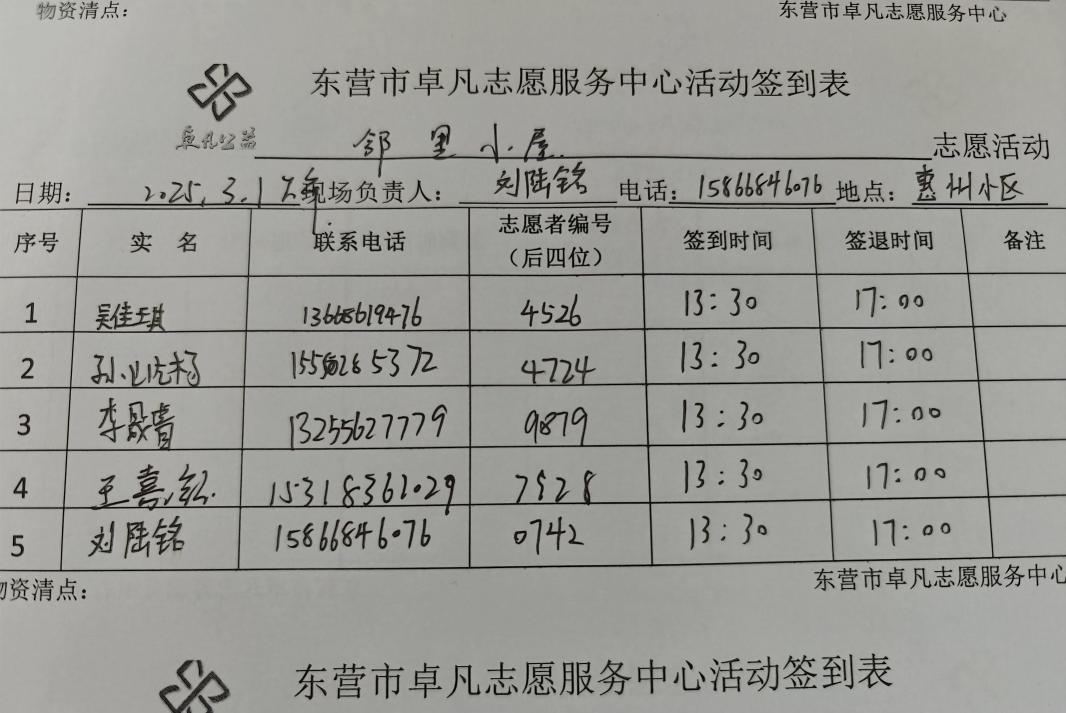 物资清点： 东营市卓凡志愿服务中心
东营市卓凡志愿服务中心活动签到表
卓凡公益
邻里小屋 志愿活动
日期： 2025.3.1 现场负责人： 刘陆铭 电话： 15866846076 地点： 惠州小区
序号 实 名 联系电话 志愿者编号 签到时间 签退时间 备注
（后四位）
1 吴佳琪 13668619476 4526 13:30 17:00
2 孙 15550265372 4724 13:30 17:00
3 李晟睿 13255627779 9879 13:30 17:00
4 王嘉 15318361029 7528 13:30 17:00
5 刘陆铭 15866846076 0742 13:30 17:00
物资清点： 东营市卓凡志愿服务中心
东营市卓凡志愿服务中心活动签到表